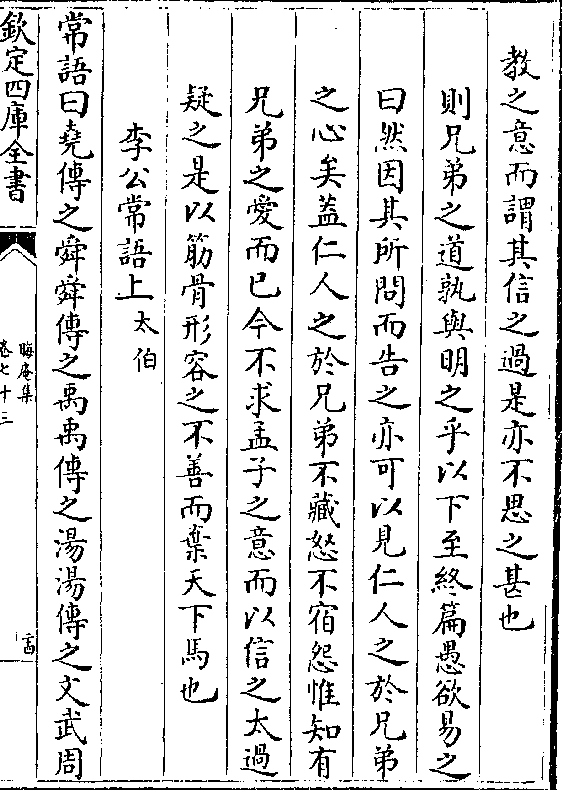 教之意而謂其信之過是亦不思之甚也
則兄弟之道孰與明之乎以下至終篇愚欲易之
曰然因其所問而告之亦可以見仁人之於兄弟
之心矣蓋仁人之於兄弟不藏怒不宿怨惟知有
兄弟之愛而已今不求孟子之意而以信之太過
疑之是以筋骨形容之不善而棄天下馬也
李公常語上太伯
常語曰堯傳之舜舜傳之禹禹傳之湯湯傳之文武周
欽定四庫全書
晦庵集
卷七十三